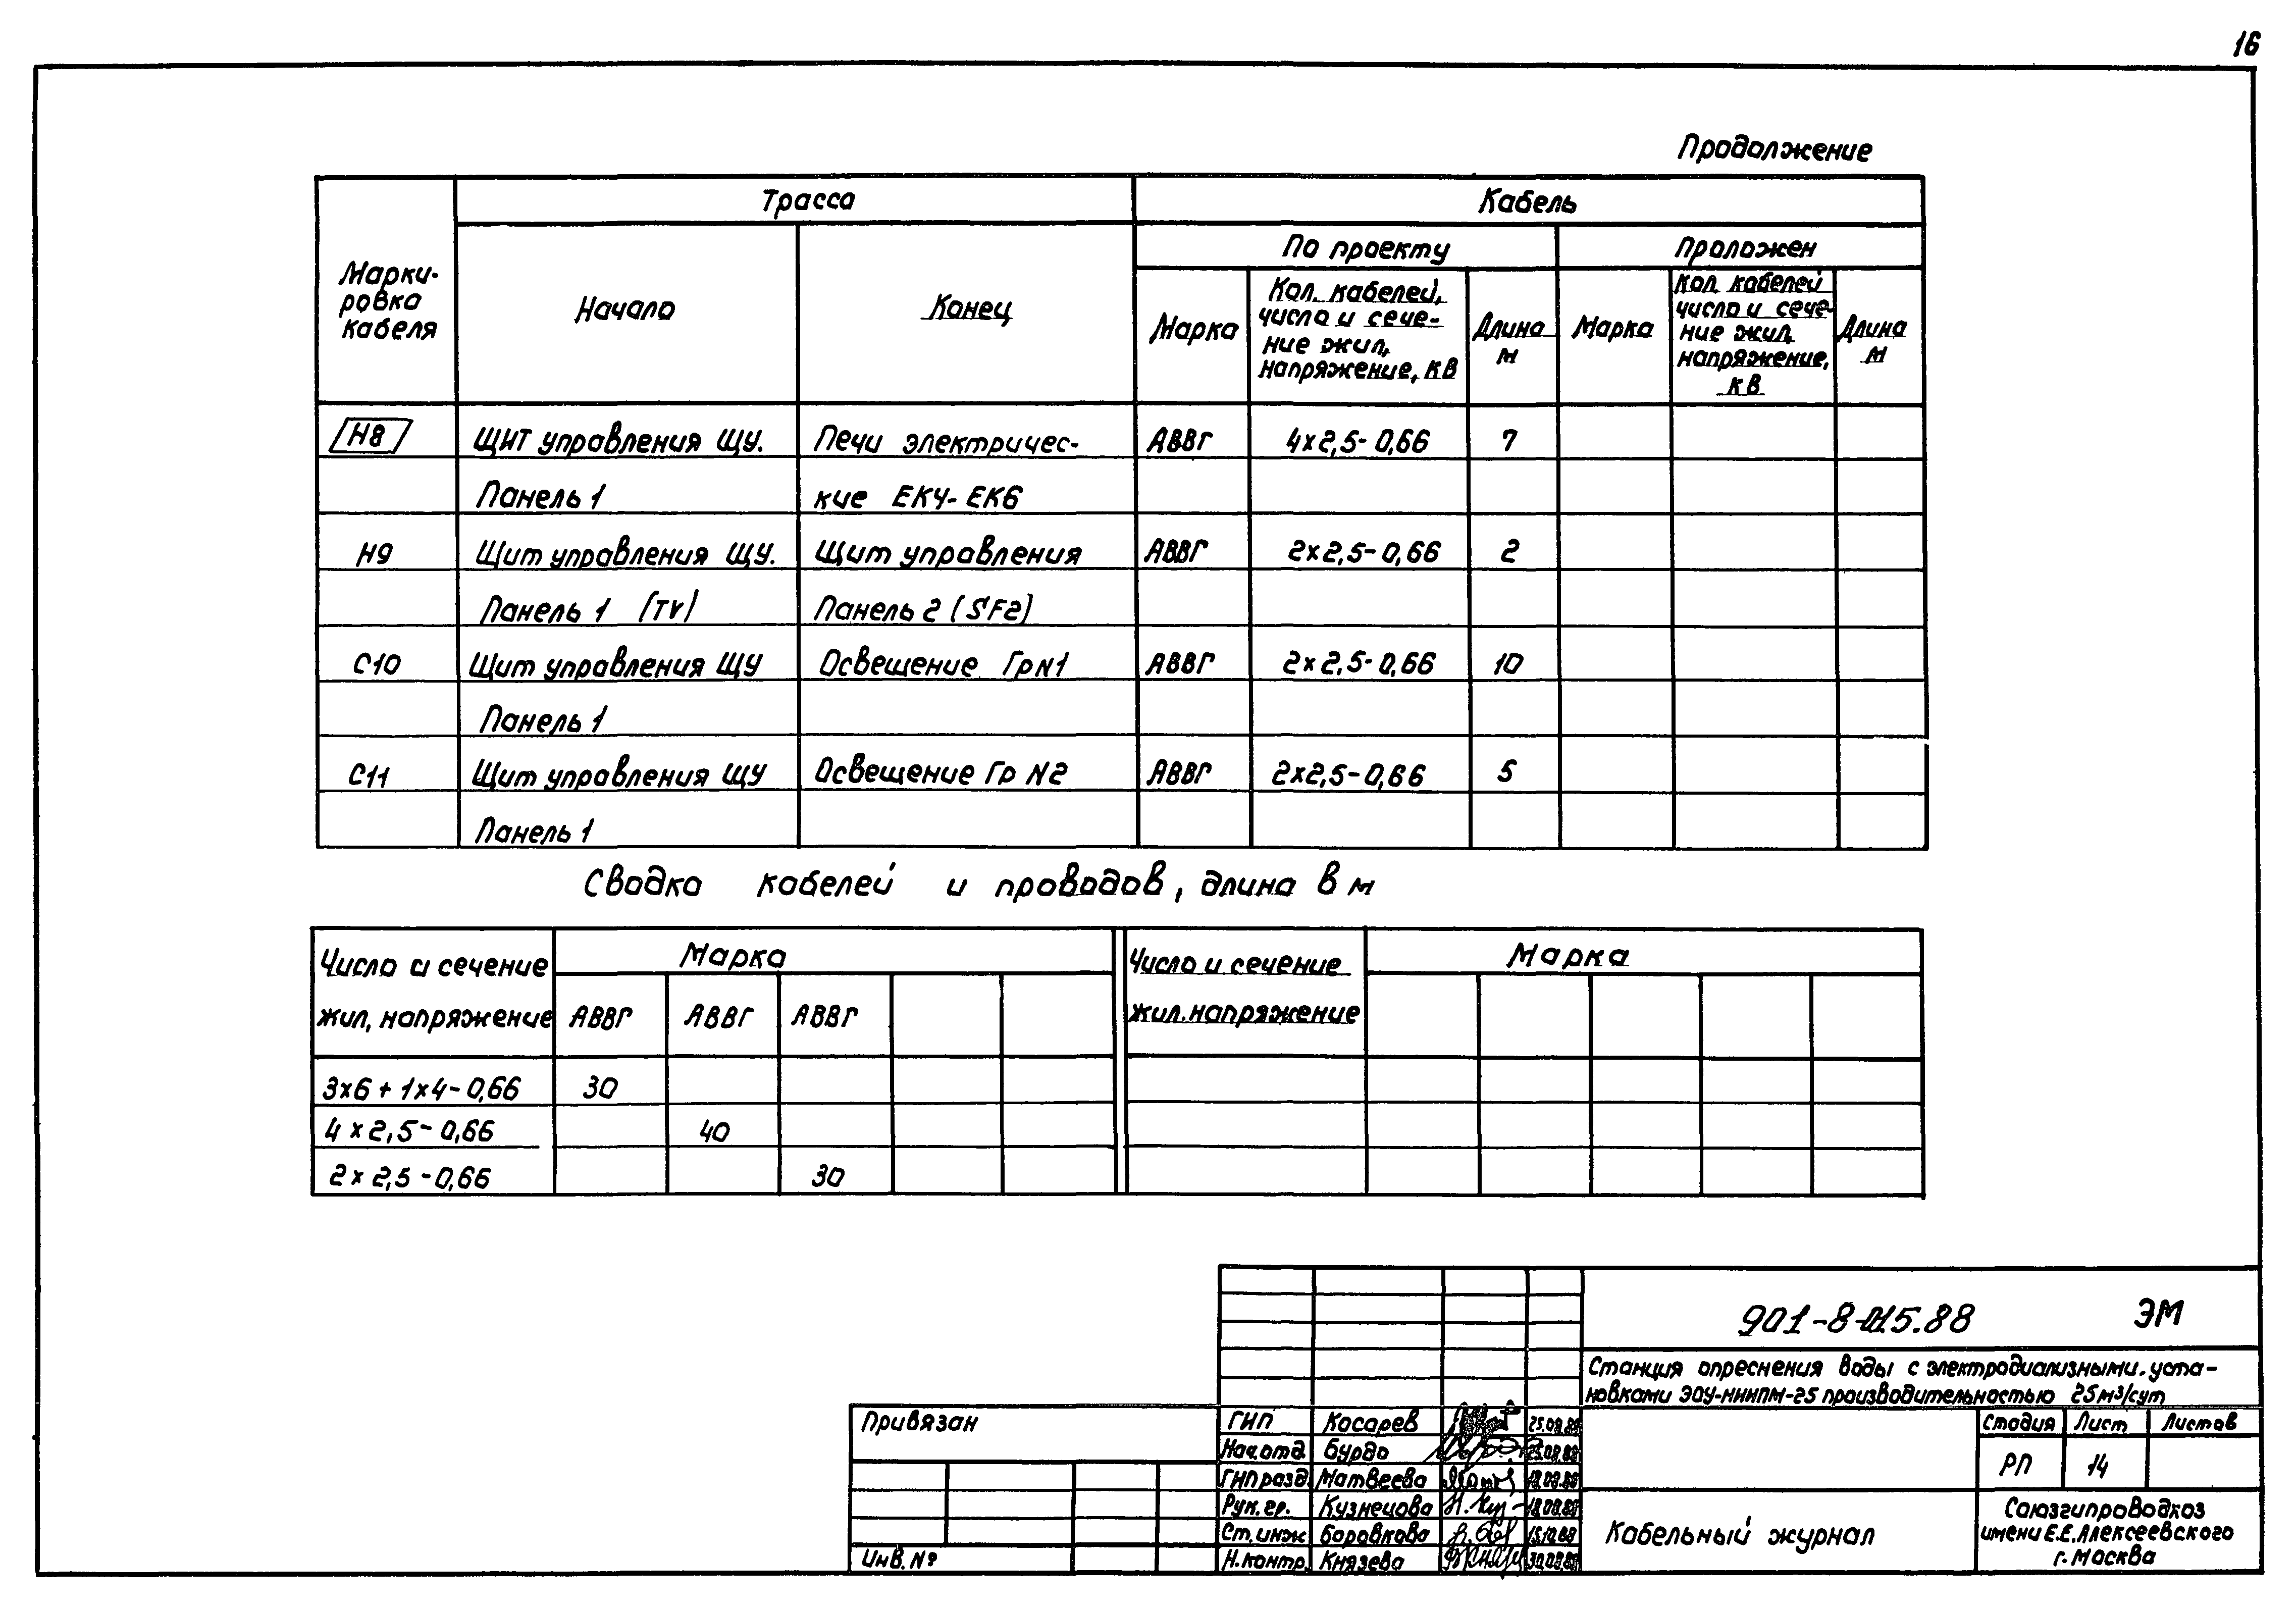 16
Продолжение
Марки-
ровка
кабеля
Трасса
Кабель
Начало
Конец
По проекту
Проложен
Марка
Кол. кабелей,
число и сече-
ние жил,
напряжение, кВ
Длина
м
Марка
Кол. кабелей
число и сече-
ние жил,
напряжение,
кВ
Длина
м
Н8 ЩИТ управления ЩУ. Печи электричес- АВВГ 4х2,5-0,66 7
Панель 1 кие ЕК4-ЕК6
Н9 Щит управления ЩУ. Щит управления АВВГ 2х2,5-0,66 2
Панель 1 (TV) Панель 2 (SF2)
С10 Щит управления ЩУ Освещение Гр N1 АВВГ 2х2,5-0,66 10
Панель 1
С11 Щит управления ЩУ Освещение Гр N2 АВВГ 2х2,5-0,66 5
Панель 1
Сводка кабелей и проводов, длина в м
Число и сечение
жил, напряжение
Марка
АВВГ АВВГ АВВГ
Число и сечение
жил. напряжение
Марка
3х6 + 1х4-0,66 30
4 х 2,5-0,66 40
2 х 2,5-0,66 30
901-8-015.88 ЭМ
Станция опреснения воды с электродиализными. уста-
новками ЭОУ-НИИПМ-25 производительностью 25м³/сут
Привязан
Инв. №
ГИП Косарев 25.08.88
Нач.отд. Бурдо 25.08.88
ГИП разд. Матвеева 18.08.88
Рук. гр. Кузнецова 18.08.88
Ст. инж Боровкова 15.12.88
Н.контр. Князева 30.08.88
Стадия Лист Листов
РП 14
Кабельный журнал
Союзгипроводхоз
имени Е.Е.Алексеевского
г. Москва